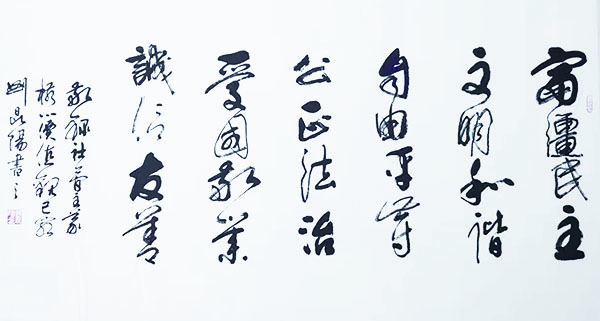 富彊民主
文明和諧
自由平等
公正法治
愛國敬業
誠信友善
敬錄社會主義
核心價值觀己亥
劉昆陽書之